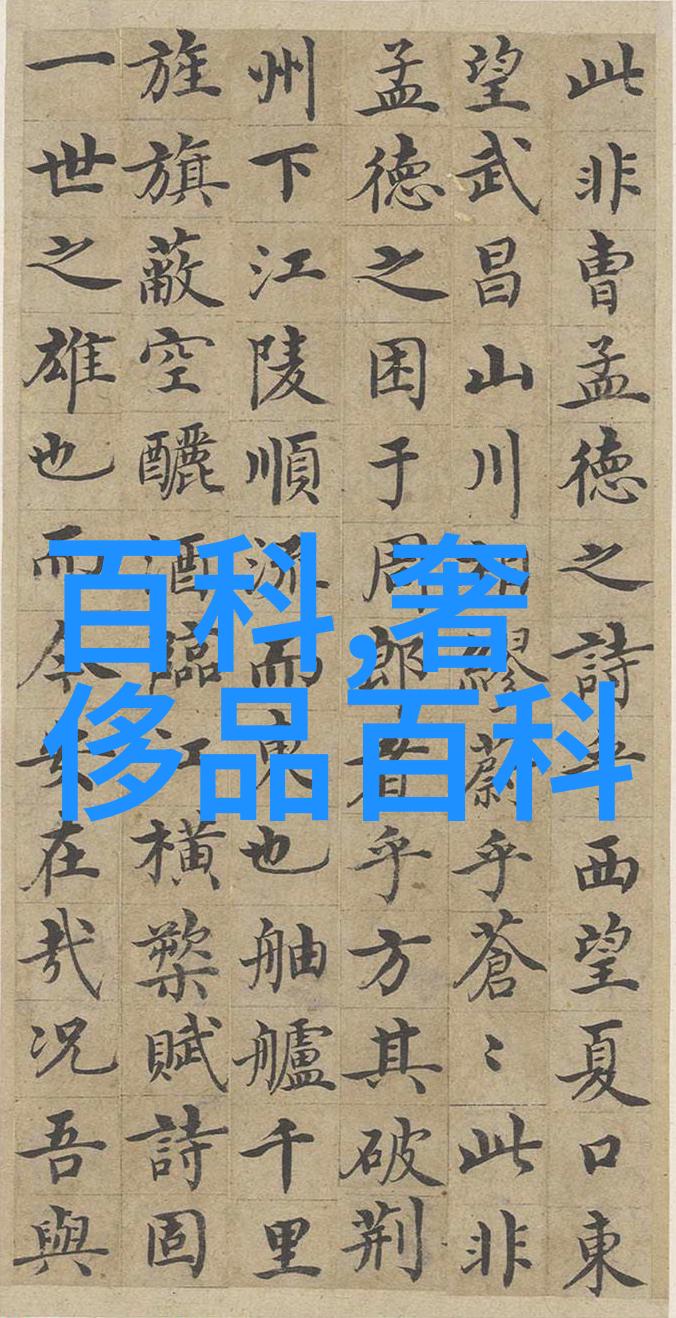 此非曹孟德之詩乎西望夏口東
望武昌山川相繆蔚乎蒼〻此非
孟德之困于周郎者乎方其破荆
州下江陵順流而東也舳艫千里
旌旗蔽空釃酒臨江橫槊賦詩固
一世之雄也而今安在哉况吾與
百科,奢
侈品百科